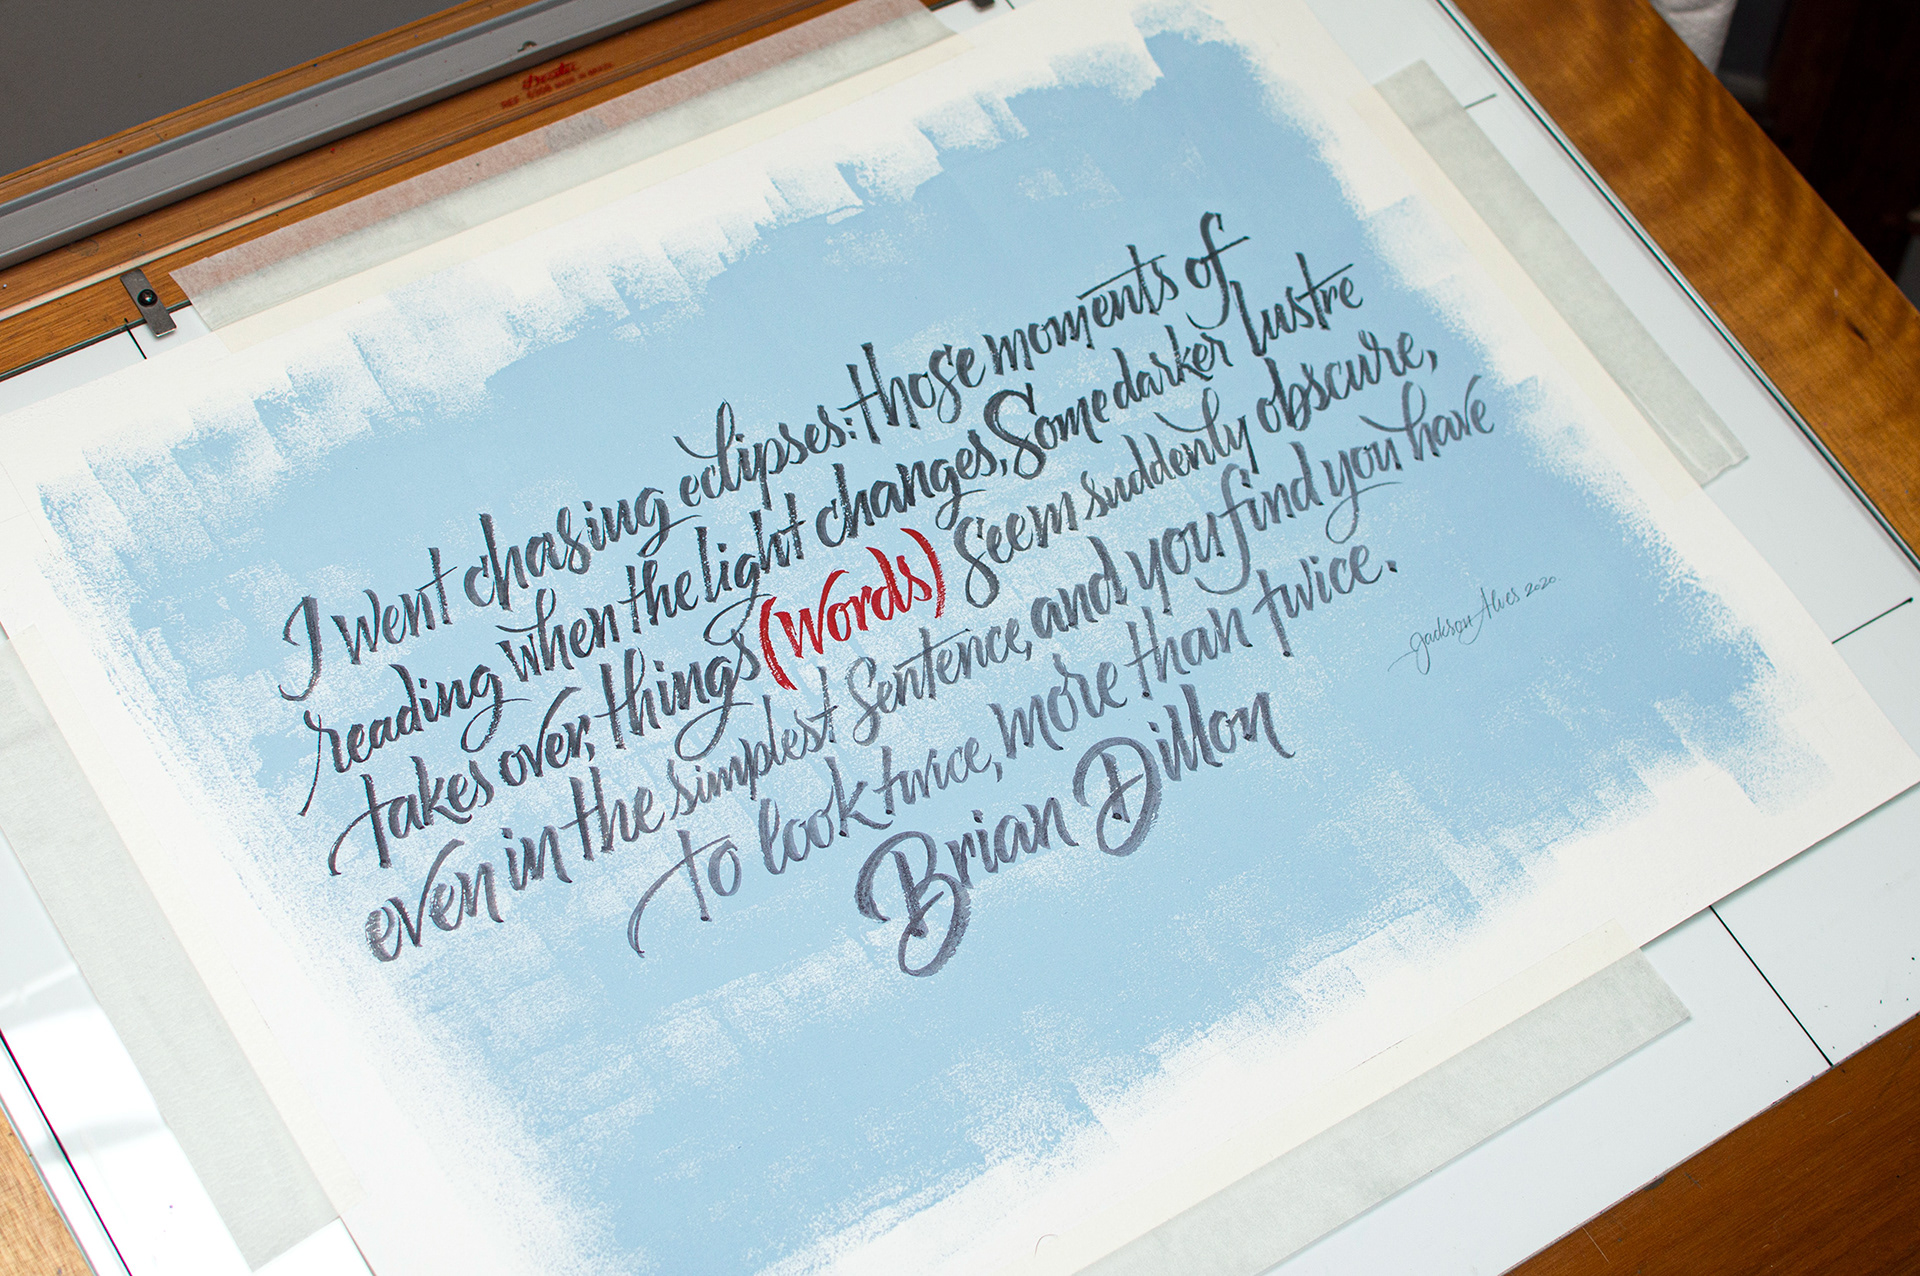 I went chasing eclipses: those moments of
reading when the light changes, Some darker lustre
takes over, things (words) seem suddenly obscure,
even in the simplest sentence, and you find you have
to look twice, more than twice.
Brian Dillon
Jackson Alves 2020